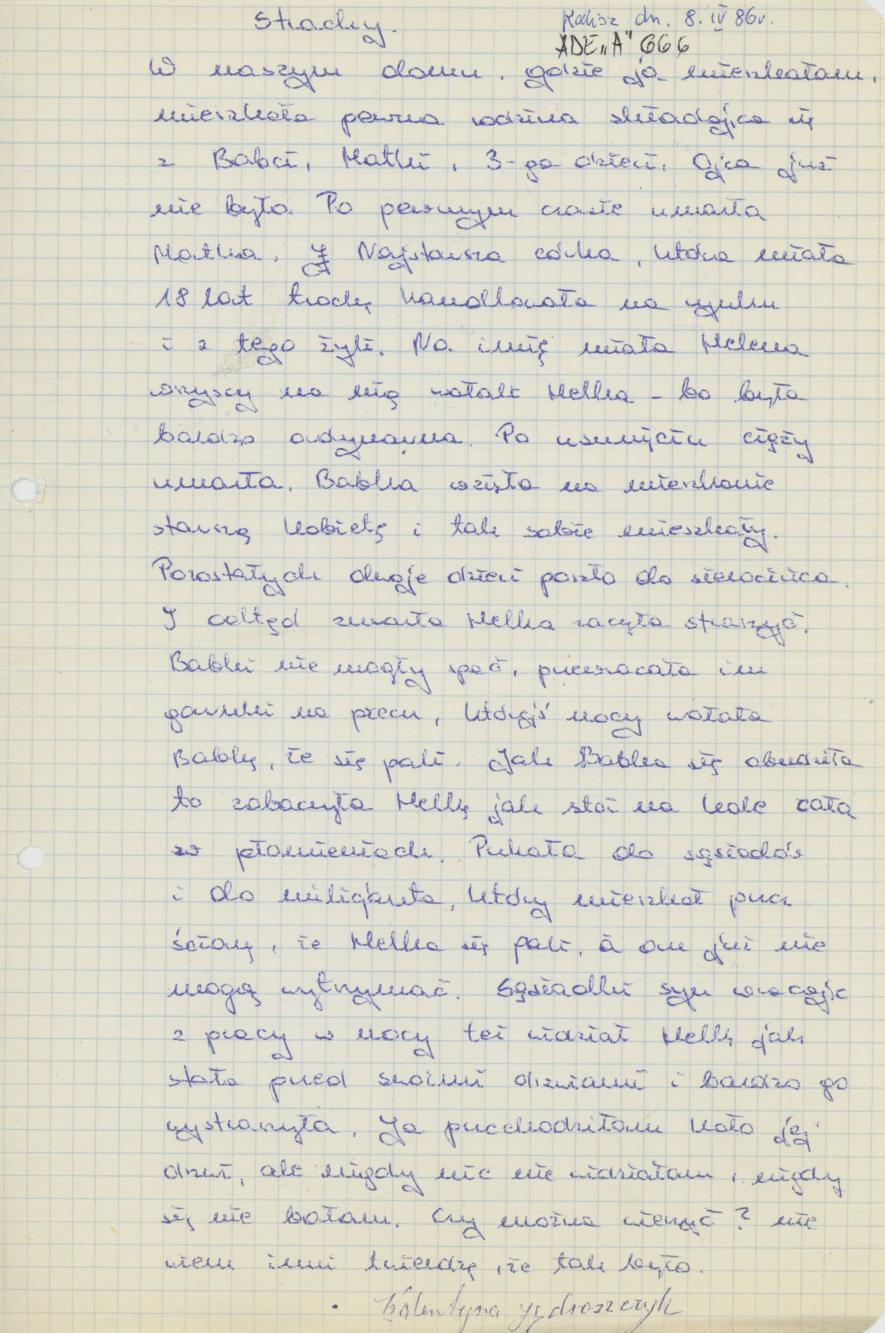 Strachy.
Kalisz dn. 8. IV 86r.
ADE „A" 666
W naszym domu, gdzie ja mieszkałam,
mieszkała pewna rodzina składająca się
z Babci, Matki, 3-ga dzieci. Ojca już
nie było. Po pewnym czasie umarła
Matka. I Najstarsza córka, która miała
18 lat trochę handlowała na rynku
i z tego żyli. Na imię miała Helena
wszyscy na nią wołali Helka - bo była
bardzo ordynarna. Po usunięciu ciąży
umarła. Babka wzięła na mieszkanie
starszą kobietę i tak sobie mieszkały.
Pozostałych dwoje dzieci poszło do sierocińca.
I odtąd zmarła Helka zaczęła straszyć.
Babki nie mogły spać, przewracała im
garnki na piecu, którejś nocy wołała
Babkę, że się pali. Jak Babka się obudziła
to zobaczyła Helkę jak stoi na kole cała
w płomieniach. Pukała do sąsiadów
i do milicjanta, który mieszkał przez
ścianę, że Helka się pali, a one już nie
mogą wytrzymać. Sąsiadki syn wracając
z pracy w nocy też widział Helkę jak
stała przed swoimi drzwiami i bardzo go
wystraszyła. Ja przechodziłam koło jej
drzwi, ale nigdy nic nie widziałam i nigdy
się nie bałam. Czy można wierzyć? nie
wiem inni twierdzą, że tak było.
Walentyna Jędraszczyk